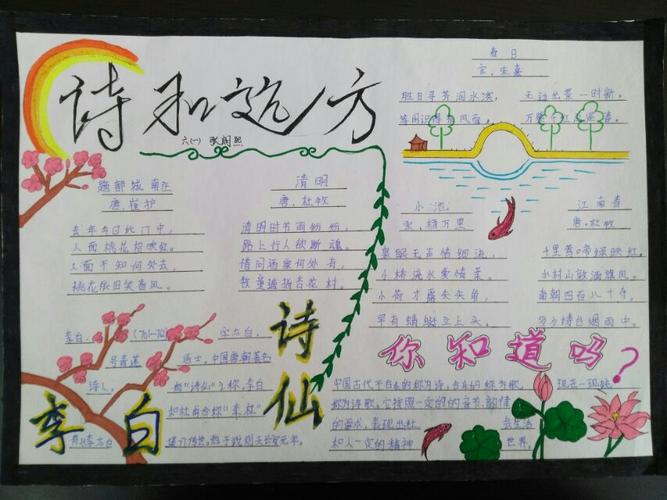 诗和远方
六(一)
题都城南庄
唐,崔护
去年今日此门中,
人面桃花相映红。
人面不知何处去,
桃花依旧笑春风。
清明
唐,杜牧
清明时节雨纷纷,
路上行人欲断魂。
借问酒家何处有,
牧童遥指杏花村。
春日
宋,朱熹
胜日寻芳泗水滨, 无边光景一时新。
等闲识得东风面, 万紫千红总是春。
小池
宋,杨万里
泉眼无声惜细流,
小荷才露尖尖角,
早有蜻蜓立上头。
江南春
唐,杜牧
千里莺啼绿映红,
水村山
南朝四百八十寺,
多少楼台烟雨中。
李白
诗仙
李白, 字太白,
号青莲居士,中国唐朝著名
诗人。 有"诗仙"之称,李白
和杜甫合称"李杜"
你知道吗?
中国古代不合乐的称为诗,合乐的称为歌,
现在一
的要求,表现出社会生活
和人一定的精神世界。